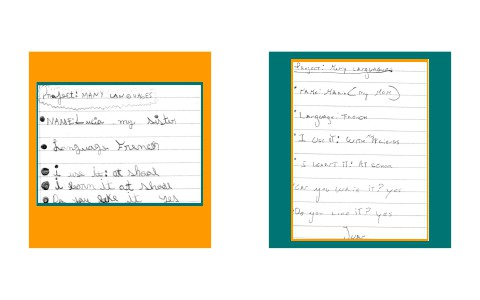 Project: MANY LANGUAGES
NAME Lucia my sister
Language French
i use it: at shool
i learn it at shool
Do you like it yes
Project: MANY LANGUAGES
NAME: MARIA (MY MOM)
Language: FRENCH
I USE IT: WITH FRIENDS
I LEARNT IT: AT SCHOOL
CAN YOU WRITE IT? YES
DO YOU LIKE IT? YES
JUAN